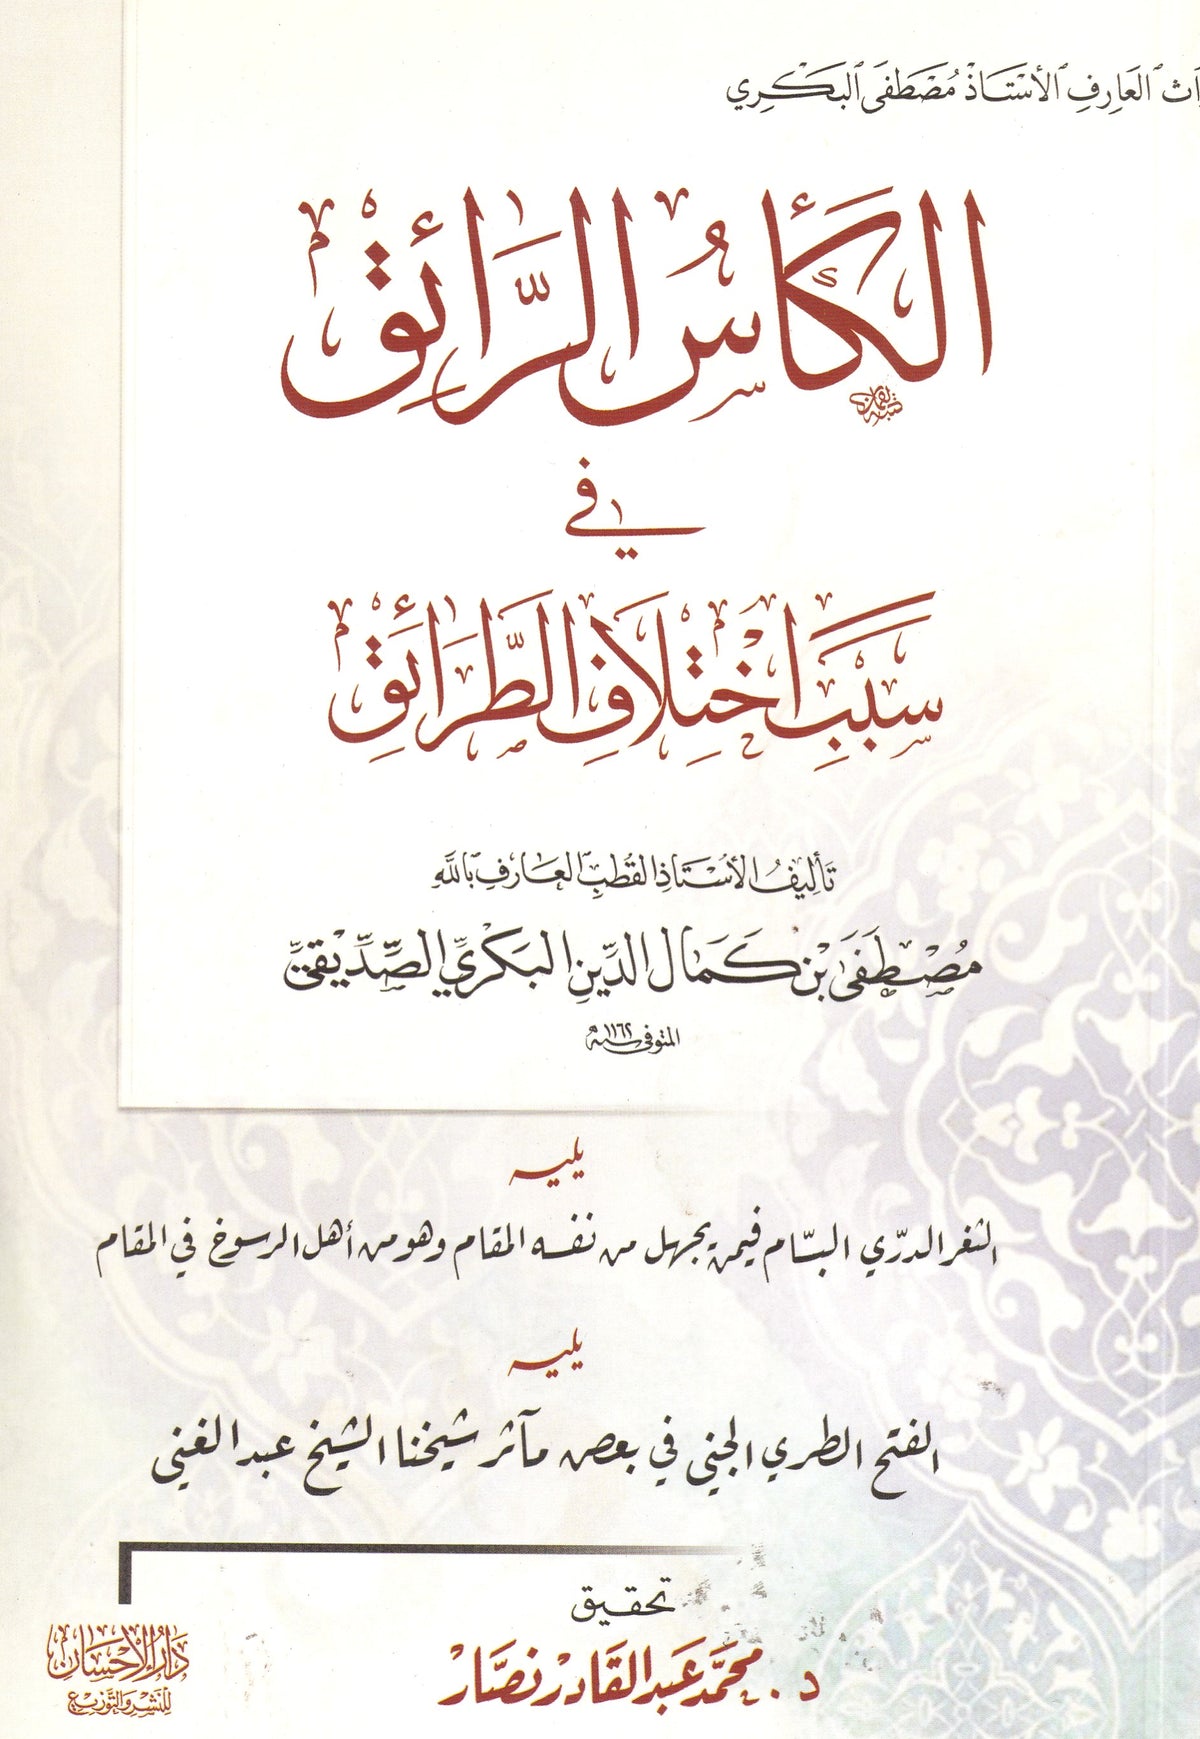 العَارِفِ الأُسْتَاذْ مُصْطَفَى البَكْرِي
الكَأْسُ الرَّائِقُ
فِي
سَبَبِ اخْتِلَافِ الطَّرَائِقِ
تَأْلِيفُ الأُسْتَاذِ القُطْبِ العَارِفِ بِاللَّهِ
مُصْطَفَى بْنِ كَمَالِ الدِّينِ البَكْرِيِّ الصِّدِّيقِيِّ
المتوفى سنة ١١٦٢
يليه
الثغر الدرّي البسّام فيمن يجهل من نفسه المقام وهو من أهل الرسوخ في المقام
يليه
الفتح الطري الجني في بعض مآثر شيخنا الشيخ عبد الغني
تحقيق
د. محمَّد عَبد القَادر نصَّار
دَارُ الإِحْسَان
لِلنَّشْرِ وَالتَّوْزِيعِ